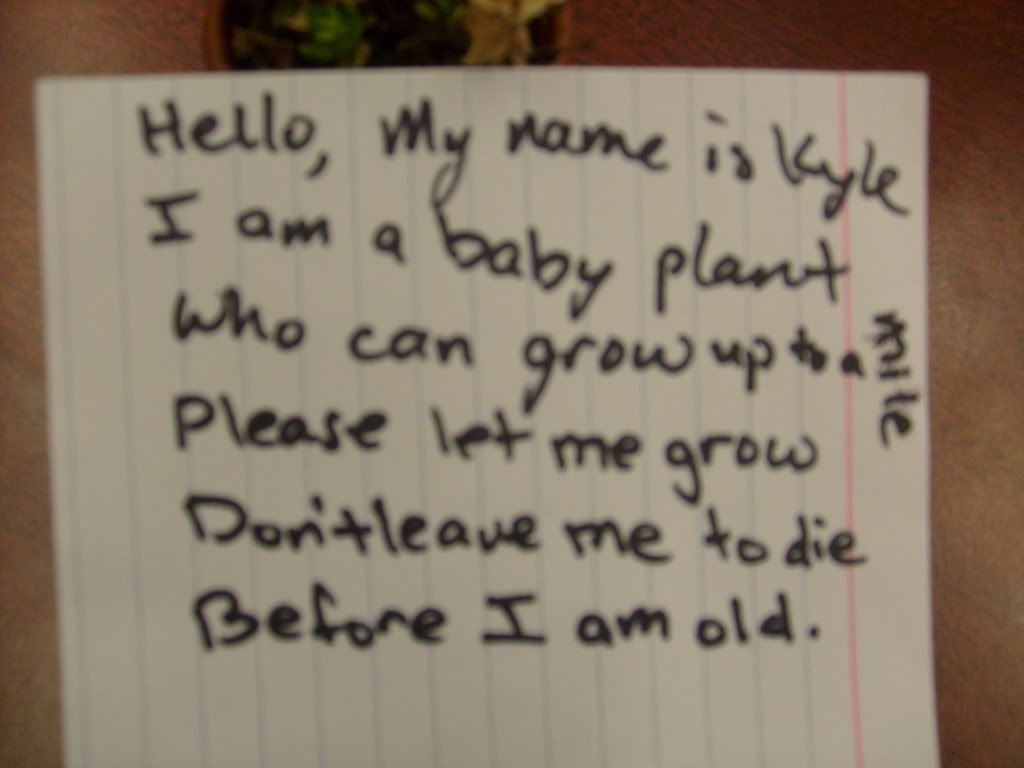 Hello, My name is Kyle
I am a baby plant
who can grow up to a mile
Please let me grow
Don't leave me to die
Before I am old.